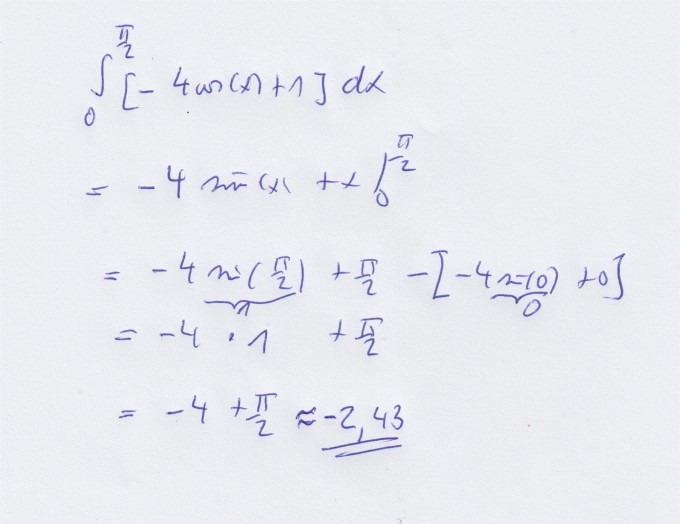 ∫₀^(π/2) [- 4cos(x)+1] dx
= -4 sin(x) +x |₀^(π/2)
= -4 sin(π/2) + π/2 -[-4 sin(0) +0]
1 0
= -4 · 1 + π/2
= -4 + π/2 ≈ -2,43